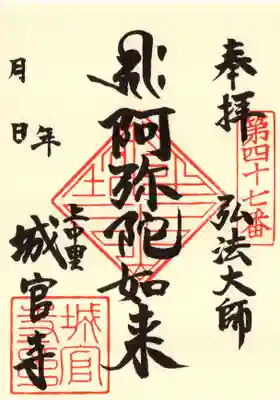 奉拝
第四十七番
弘法大師
阿弥陀如来
上中里
城官寺
年
月
日